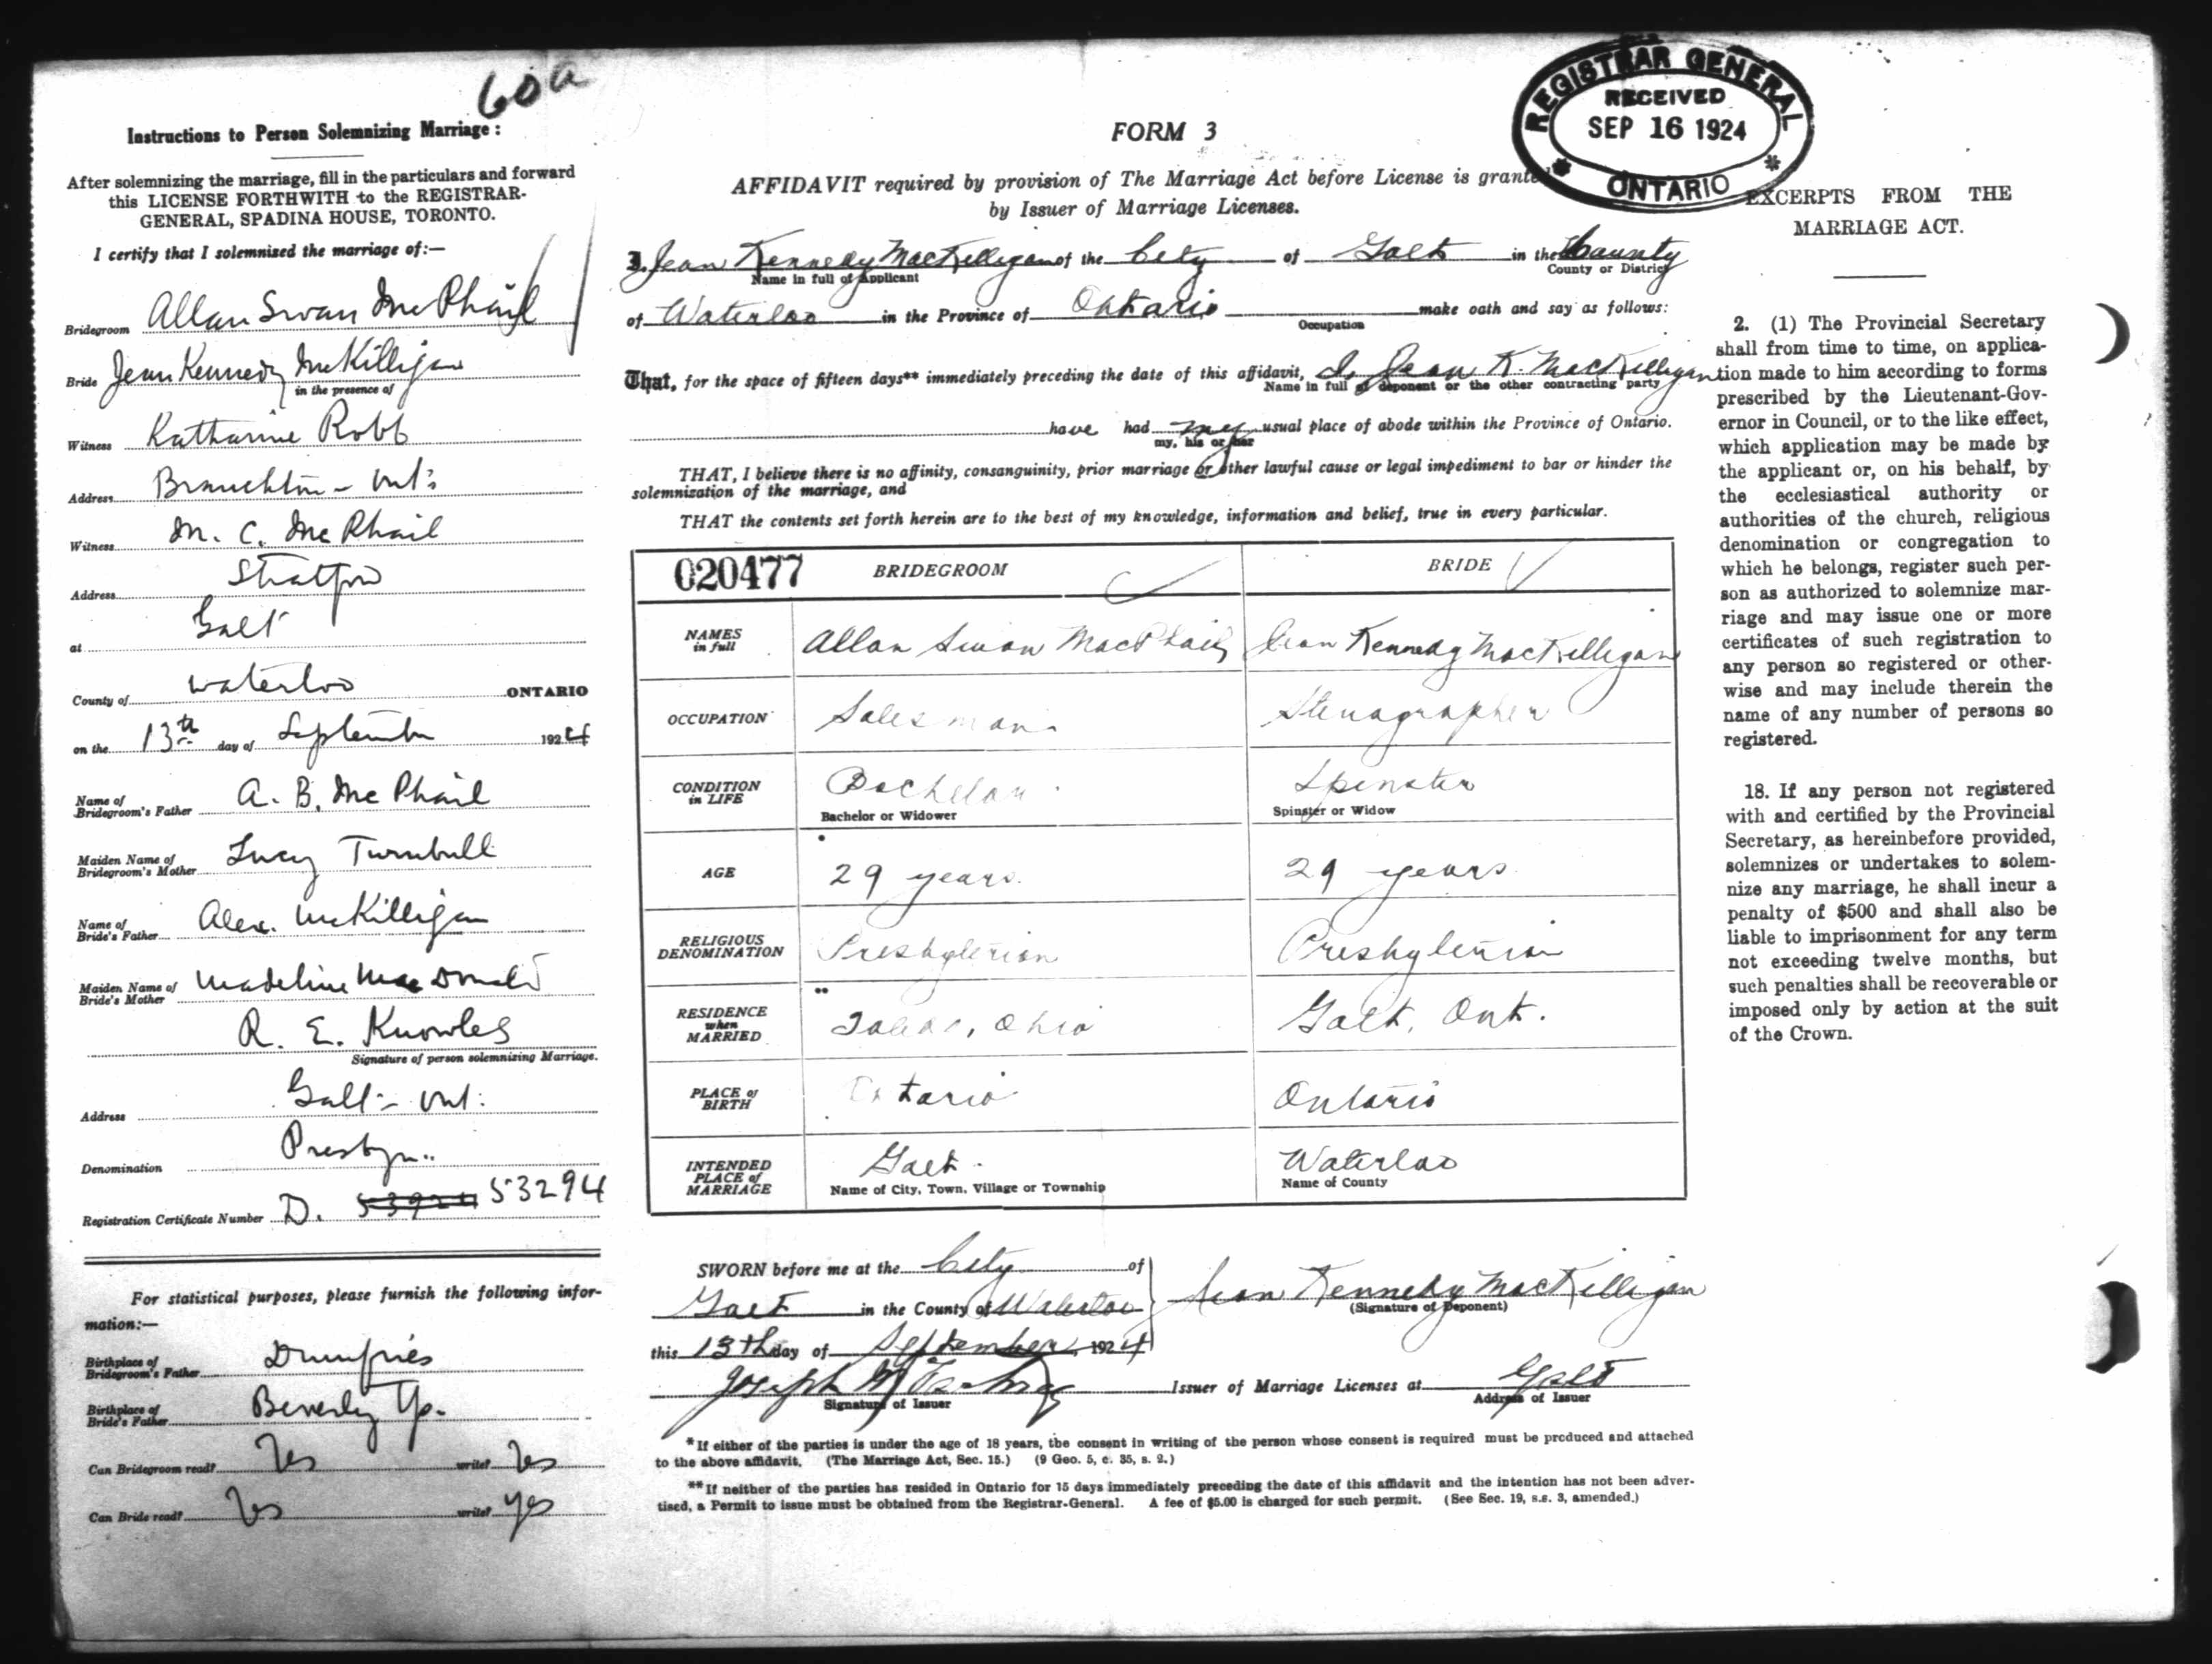 60a
Instructions to Person Solemnizing Marriage :
After solemnizing the marriage, fill in the particulars and forward
this LICENSE FORTHWITH to the REGISTRAR-
GENERAL, SPADINA HOUSE, TORONTO.
I certify that I solemnised the marriage of:—
Bridegroom Allan Swan McPhail
Bride Jean Kennedy McKilligan
in the presence of
Witness Katharine Robb
Address Branchton - Ont:
Witness M. C. McPhail
Address Stratford
at Galt
County of Waterloo ONTARIO
on the 13th day of September 1924
Name of
Bridegroom's Father A. B. McPhail
Maiden Name of
Bridegroom's Mother Lucy Turnbull
Name of
Bride's Father Alex. McKilligan
Maiden Name of
Bride's Mother Madeline MacDonald
R. E. Knowles
Signature of person solemnizing Marriage.
Address Galt - Ont:
Denomination Presbyn..
Registration Certificate Number D. 53294
For statistical purposes, please furnish the following infor-
mation:—
Birthplace of
Bridegroom's Father Dumfries
Birthplace of
Bride's Father Beverly Tp.
Can Bridegroom read? Yes write? Yes
Can Bride read? Yes write? Yes
FORM 3
REGISTRAR GENERAL
RECEIVED
SEP 16 1924
ONTARIO
AFFIDAVIT required by provision of The Marriage Act before License is granted
by Issuer of Marriage Licenses.
I, Jean Kennedy MacKilligan of the City of Galt in the County
Name in full of Applicant County or District
of Waterloo in the Province of Ontario make oath and say as follows:
Occupation
That, for the space of fifteen days** immediately preceding the date of this affidavit, I, Jean K. MacKilligan
Name in full of deponent or the other contracting party
have had my usual place of abode within the Province of Ontario.
my, his or her
THAT, I believe there is no affinity, consanguinity, prior marriage or other lawful cause or legal impediment to bar or hinder the
solemnization of the marriage, and
THAT the contents set forth herein are to the best of my knowledge, information and belief, true in every particular.
020477 BRIDEGROOM BRIDE
NAMES
in full Allan Swan MacPhail Jean Kennedy MacKilligan
OCCUPATION Salesman Stenographer
CONDITION
in LIFE Bachelor Spinster
Bachelor or Widower Spinster or Widow
AGE 29 years 29 years
RELIGIOUS
DENOMINATION Presbyterian Presbyterian
RESIDENCE
when
MARRIED Toledo, Ohio Galt, Ont.
PLACE of
BIRTH Ontario Ontario
INTENDED
PLACE of
MARRIAGE Galt Waterloo
Name of City, Town, Village or Township Name of County
SWORN before me at the City of
Galt in the County of Waterloo
this 13th day of September, 1924
Jean Kennedy MacKilligan
(Signature of Deponent)
Joseph Issuer of Marriage Licenses at Galt
Signature of Issuer Address of Issuer
*If either of the parties is under the age of 18 years, the consent in writing of the person whose consent is required must be produced and attached
to the above affidavit. (The Marriage Act, Sec. 15.) (9 Geo. 5, c. 35, s. 2.)
**If neither of the parties has resided in Ontario for 15 days immediately preceding the date of this affidavit and the intention has not been adver-
tised, a Permit to issue must be obtained from the Registrar-General. A fee of $5.00 is charged for such permit. (See Sec. 19, s.s. 3, amended.)
EXCERPTS FROM THE
MARRIAGE ACT.
2. (1) The Provincial Secretary
shall from time to time, on applica-
tion made to him according to forms
prescribed by the Lieutenant-Gov-
ernor in Council, or to the like effect,
which application may be made by
the applicant or, on his behalf, by
the ecclesiastical authority or
authorities of the church, religious
denomination or congregation to
which he belongs, register such per-
son as authorized to solemnize mar-
riage and may issue one or more
certificates of such registration to
any person so registered or other-
wise and may include therein the
name of any number of persons so
registered.
18. If any person not registered
with and certified by the Provincial
Secretary, as hereinbefore provided,
solemnizes or undertakes to solem-
nize any marriage, he shall incur a
penalty of $500 and shall also be
liable to imprisonment for any term
not exceeding twelve months, but
such penalties shall be recoverable or
imposed only by action at the suit
of the Crown.